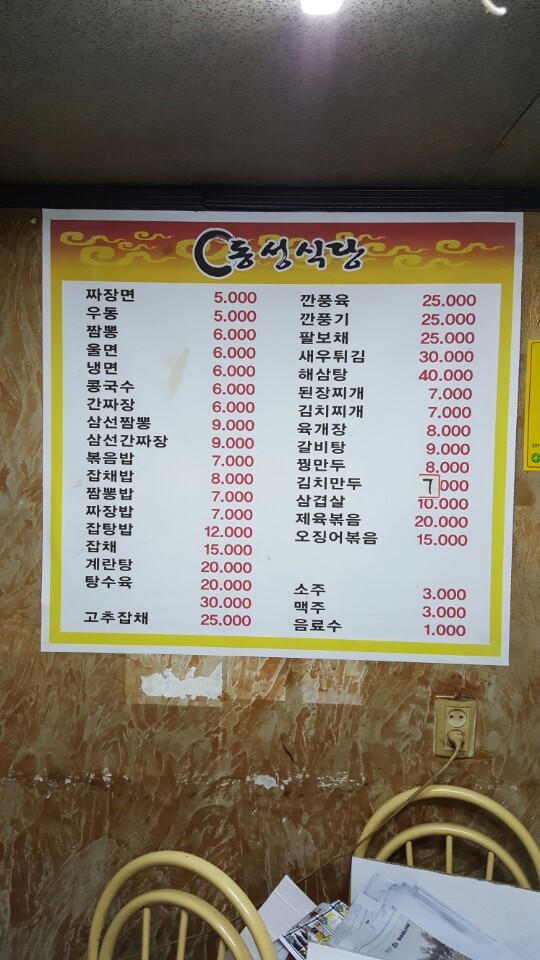 동성식당
짜장면 5.000
우동 5.000
짬뽕 6.000
울면 6.000
냉면 6.000
콩국수 6.000
간짜장 6.000
삼선짬뽕 9.000
삼선간짜장 9.000
볶음밥 7.000
잡채밥 8.000
짬뽕밥 7.000
짜장밥 7.000
잡탕밥 12.000
잡채 15.000
계란탕 20.000
탕수육 20.000
30.000
고추잡채 25.000
깐풍육 25.000
깐풍기 25.000
팔보채 25.000
새우튀김 30.000
해삼탕 40.000
된장찌개 7.000
김치찌개 7.000
육개장 8.000
갈비탕 9.000
꿩만두 8.000
김치만두 7.000
삼겹살 10.000
제육볶음 20.000
오징어볶음 15.000
소주 3.000
맥주 3.000
음료수 1.000